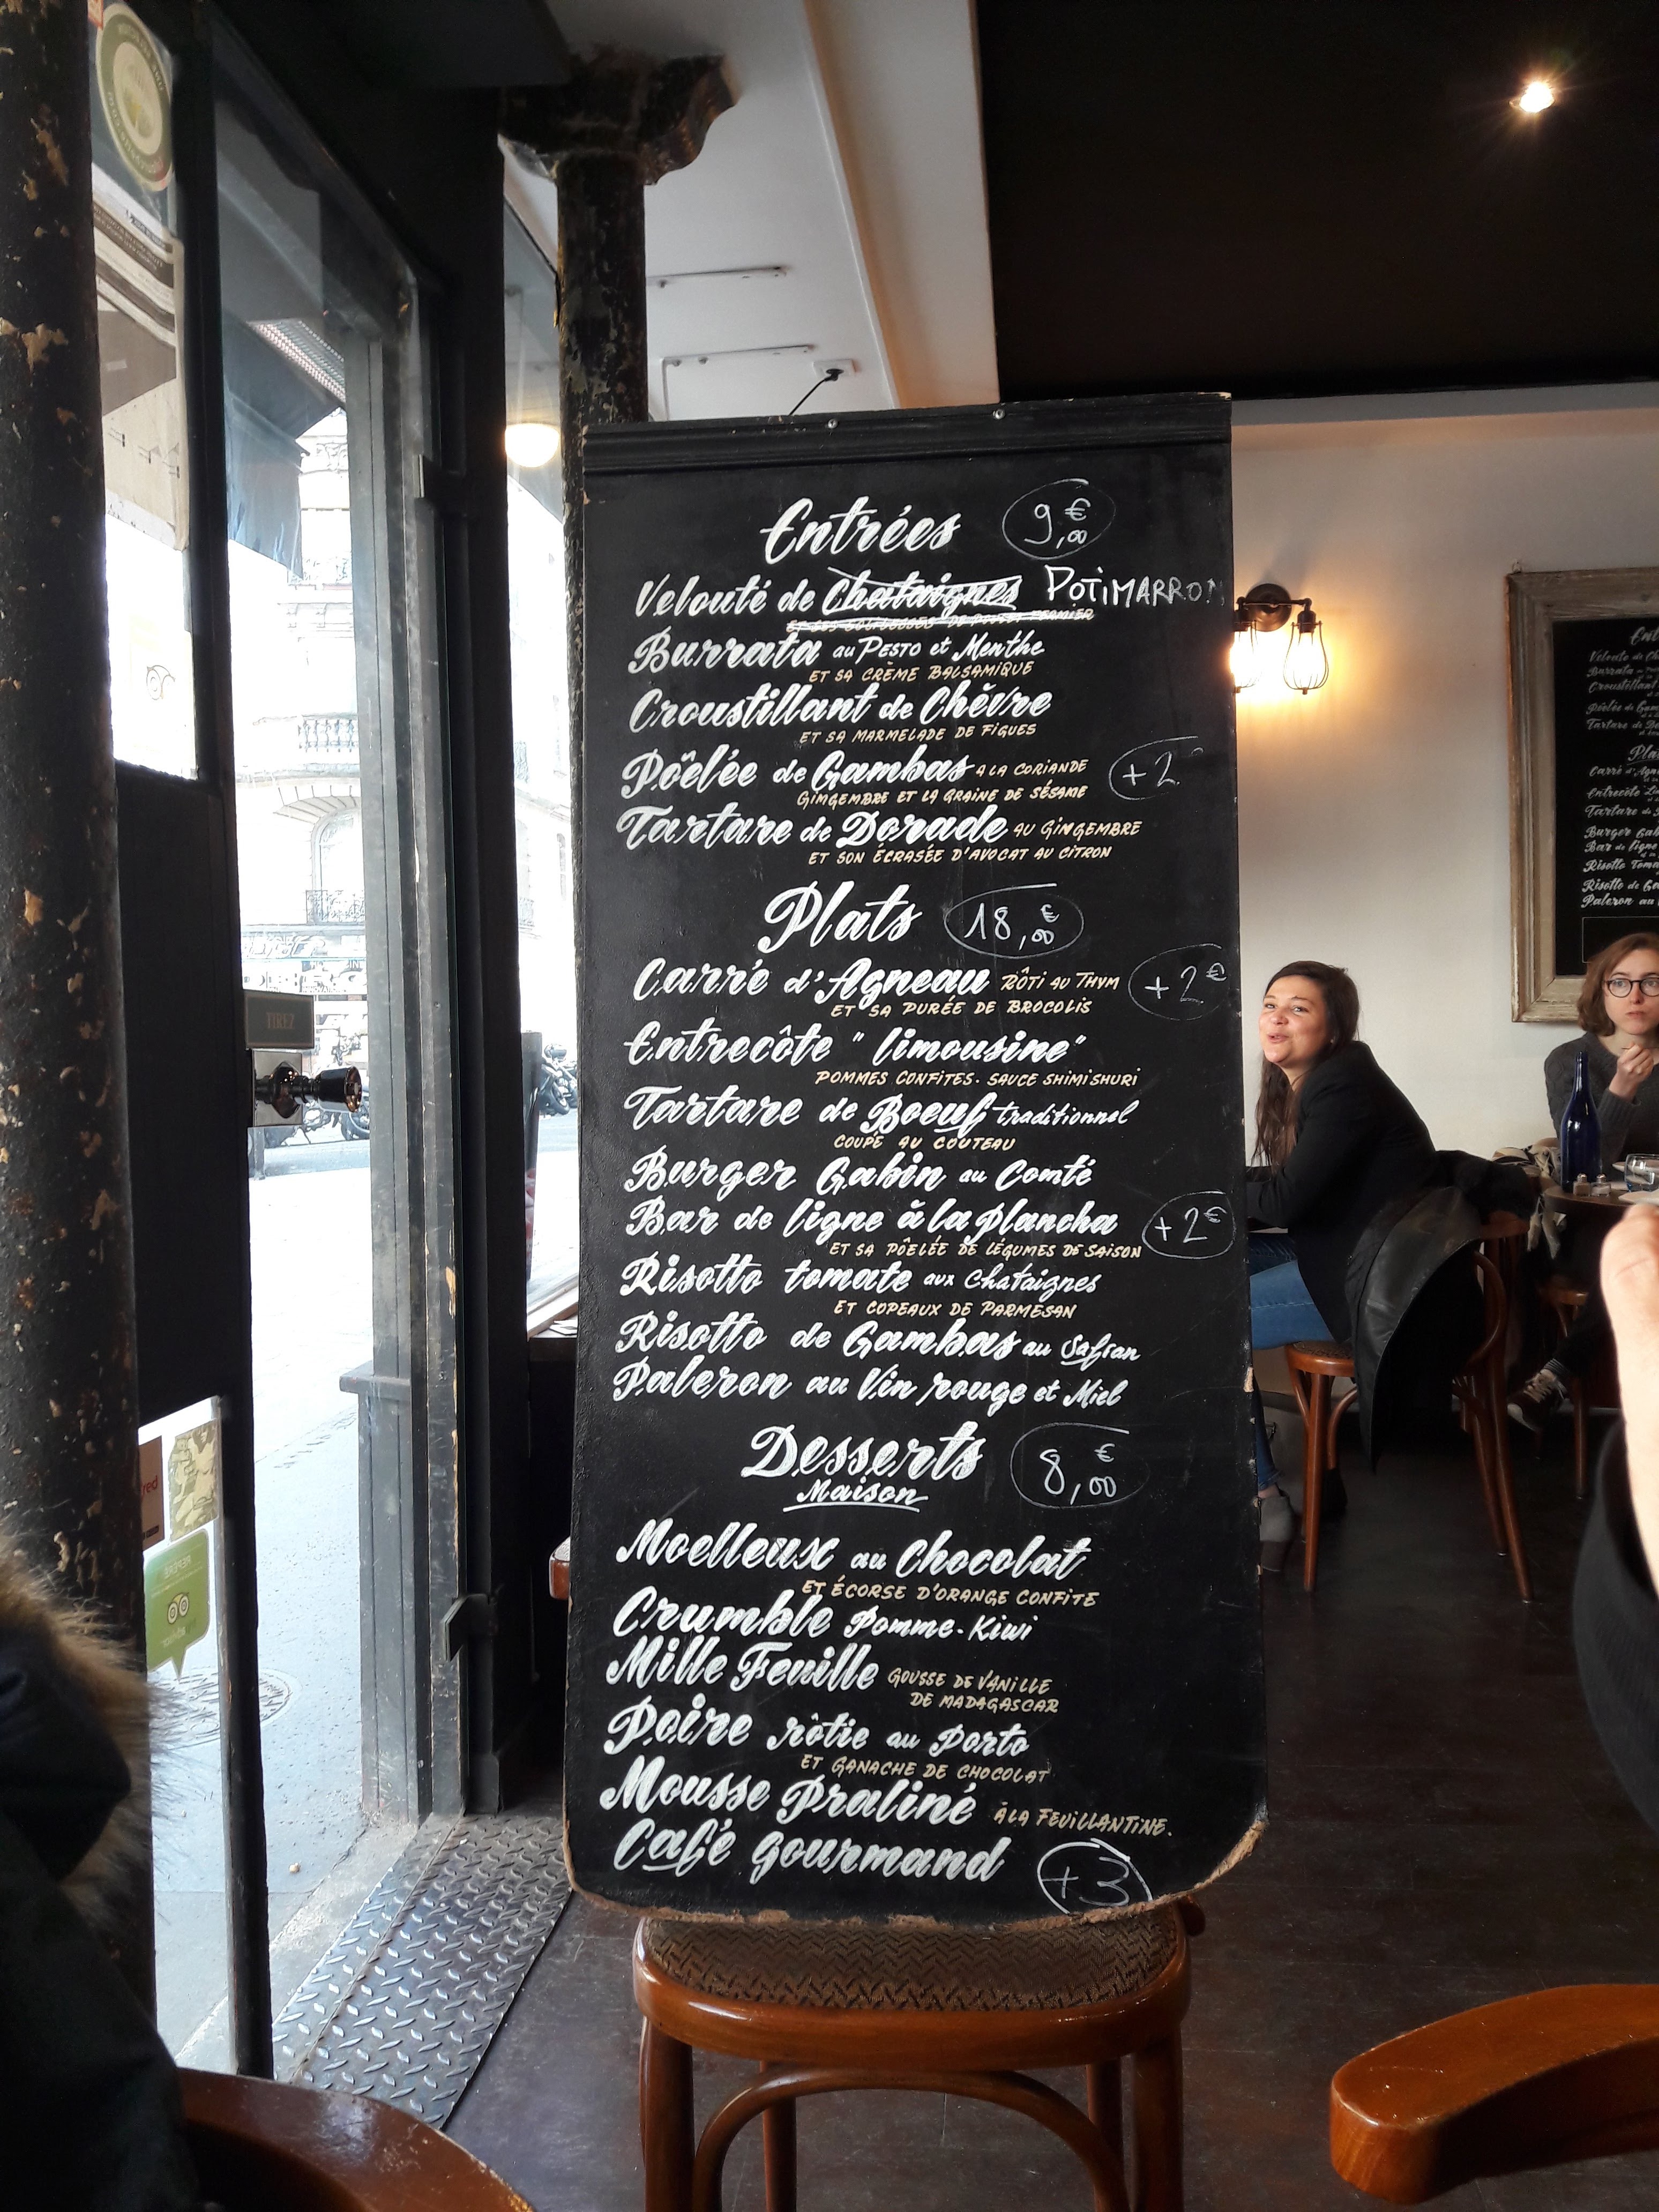 Entrées 9,00 €
Velouté de Chataignes POTIMARRON
Burrata au PESTO et Menthe
ET SA CRÈME BALSAMIQUE
Croustillant de Chèvre
ET SA MARMELADE DE FIGUES
Pöelée de Gambas A LA CORIANDE +2
GIMGEMBRE ET LA GRAINE DE SÉSAME
Tartare de Dorade AU GINGEMBRE
ET SON ÉCRASÉE D'AVOCAT AU CITRON
Plats 18,00 €
Carré d'Agneau RÔTI AU THYM +2€
ET SA PURÉE DE BROCOLIS
Entrecôte "limousine"
POMMES CONFITES. SAUCE SHIMISHURI
Tartare de Boeuf traditionnel
COUPÉ AU COUTEAU
Burger Gabin au Comté
Bar de ligne à la plancha +2€
ET SA PÔELÉE DE LÉGUMES DE SAISON
Risotto tomate aux Chataignes
ET COPEAUX DE PARMESAN
Risotto de Gambas au Safran
Paleron au Vin rouge et Miel
Desserts 8,00 €
Maison
Moelleux au Chocolat
ET ÉCORSE D'ORANGE CONFITE
Crumble Pomme-Kiwi
Mille Feuille GOUSSE DE VANILLE
DE MADAGASCAR
Poire rôtie au Porto
ET GANACHE DE CHOCOLAT
Mousse Praliné À LA FEUILLANTINE.
Café gourmand +3
TIREZ